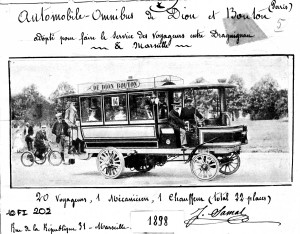 Automobile-Omnibus de Dion et Bouton (Paris)
adopté pour faire le Service des Voyageurs entre Draguignan
& Marseille
5
DE DION BOUTON
20 Voyageurs, 1 Mécanicien, 1 Chauffeur (total 22 places)
10 FI 202
1898
J. Samat
Rue de la République 31 - Marseille.